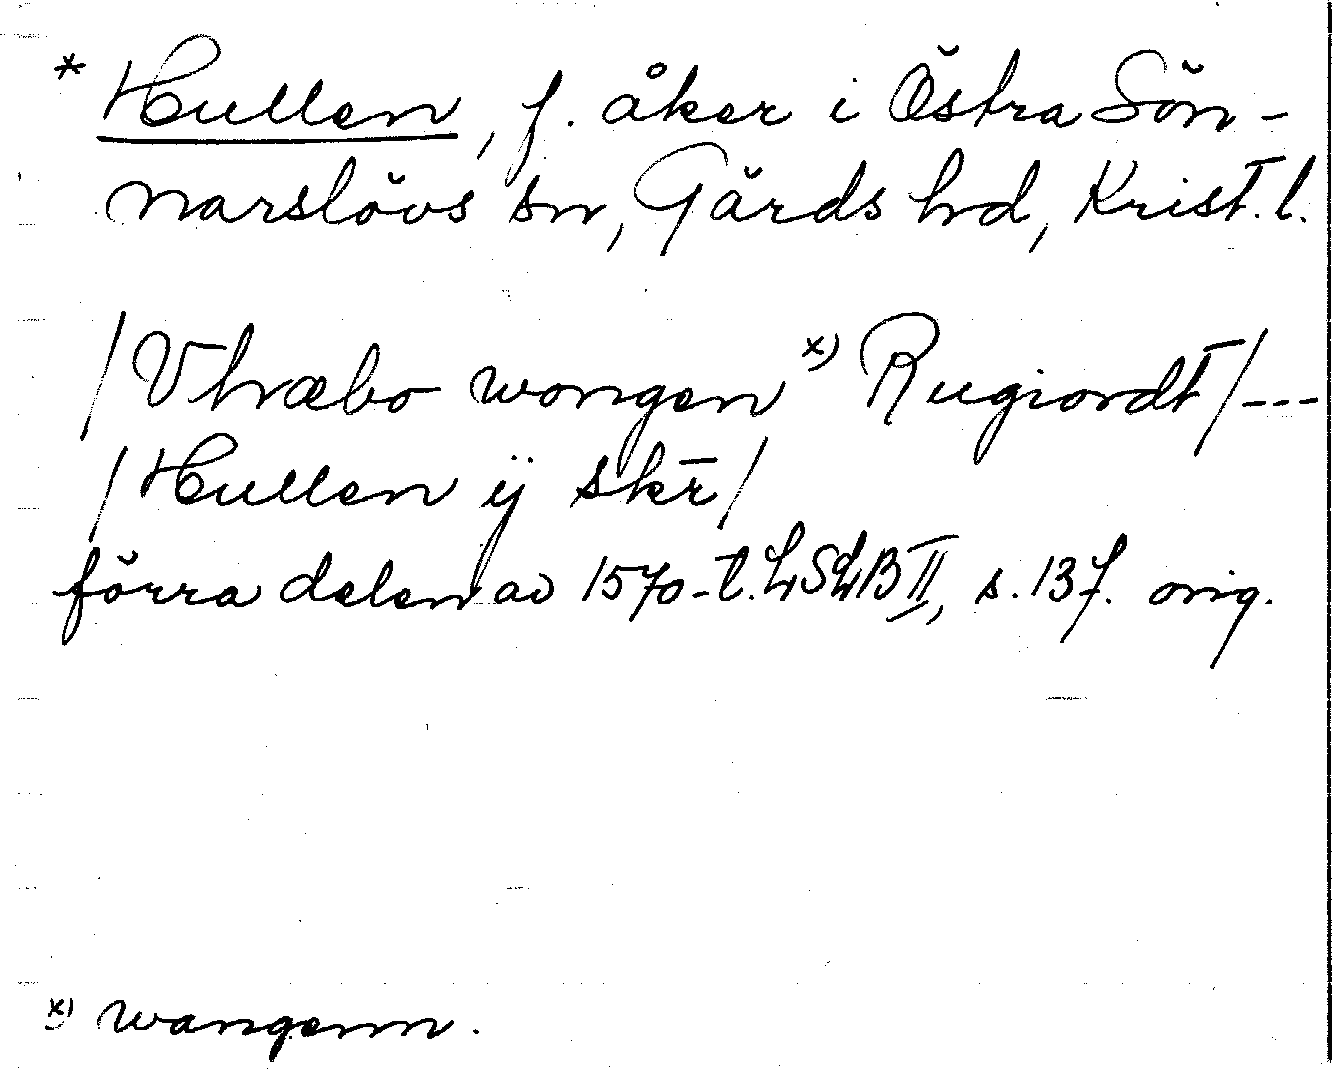 * Hullen, f. åker i Östra Sön-
narslövs sn, Gärds hd, Krist. l.
/Vhræbo wongen x) Rugiordt/---
/Hullen ij skr̄/
förra delen av 1570-t. LSLB II, s. 137. orig.
x) wangenn.